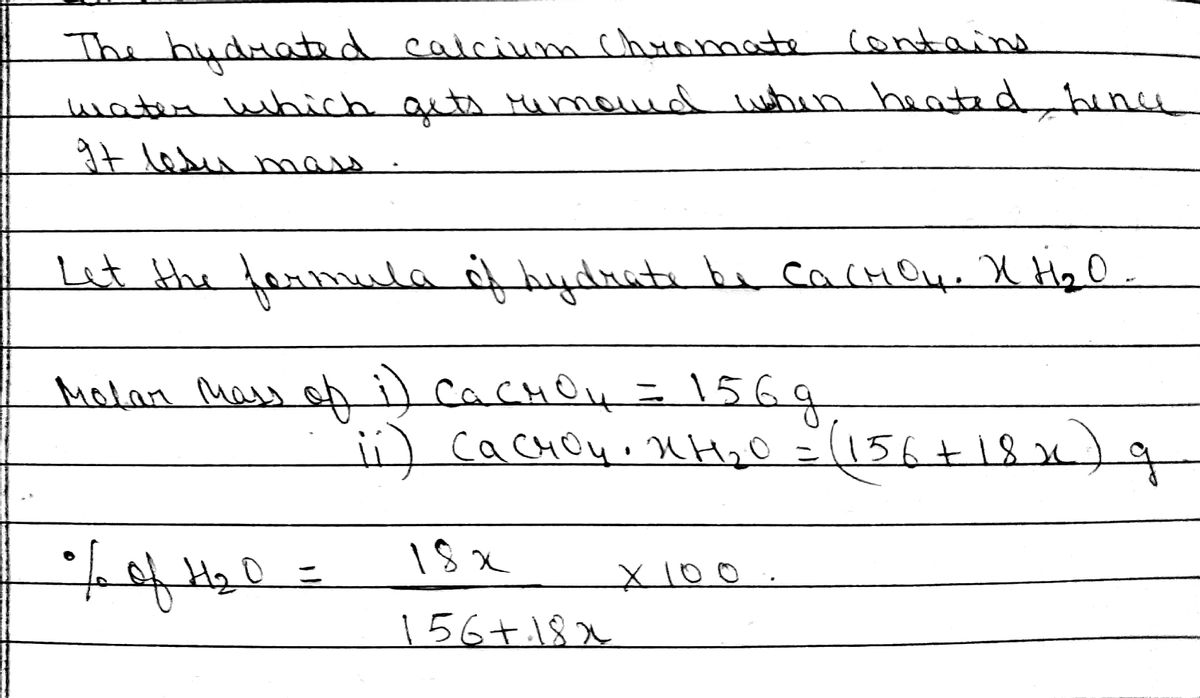 The hydrated calcium Chromate contains
water which gets removed when heated, hence
It loses mass.
Let the formula of hydrate be CaCrO₄. x H₂O.
Molar Mass of i) CaCrO₄ = 156 g
ii) CaCrO₄. xH₂O = (156 + 18x) g
% of H₂O = 18x / 156 + 18x × 100.